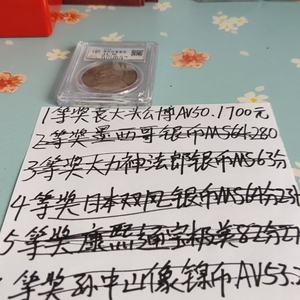 1等奖袁大头公博AV50.1700元
2等奖墨西哥银币MS64280
3等奖大力神法郎银币MS63分
4等奖日本双凤银币MS64分23
5等奖康熙通宝极美82分2
等奖孙中山像镍币AV53.